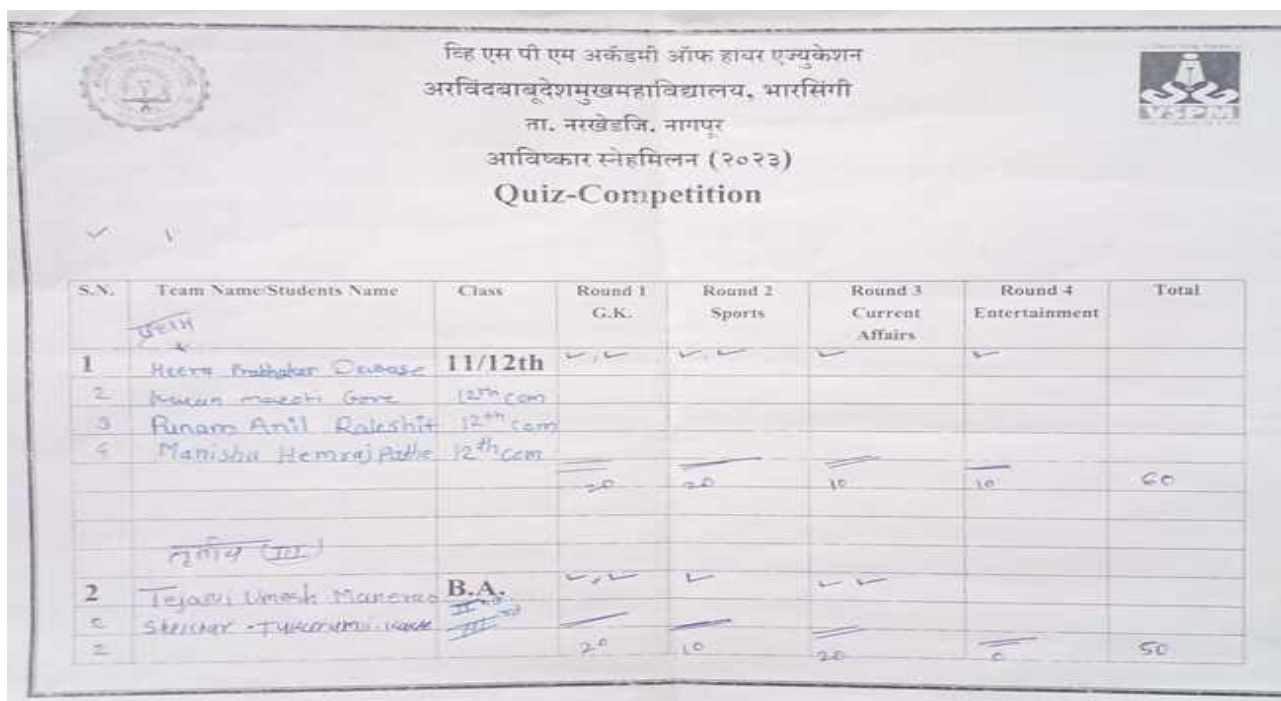 व्हि एस पी एम अकॅडमी ऑफ हायर एज्युकेशन
अरविंदबाबूदेशमुखमहाविद्यालय, भारसिंगी
ता. नरखेडजि. नागपूर
आविष्कार स्नेहमिलन (२०२३)
Quiz-Competition
VSPM
S.N. Team Name/Students Name Class Round 1 G.K. Round 2 Sports Round 3 Current Affairs Round 4 Entertainment Total
प्रथम
1 Heera Prabhakar 11/12th
2 Gore 12th com
3 Punam Anil Rakshit 12th com
4 Manisha Hemraj 12th com
20 20 10 10 60
तृतीय (III)
2 Tejasvi Umesh B.A.
III
20 10 20 0 50